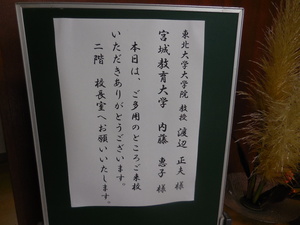 東北大学大学院 教授 渡辺 正夫 様
宮城教育大学 内藤 惠子 様
本日は、ご多用のところご来校
いただきありがとうございます。
二階 校長室へお願いいたします。